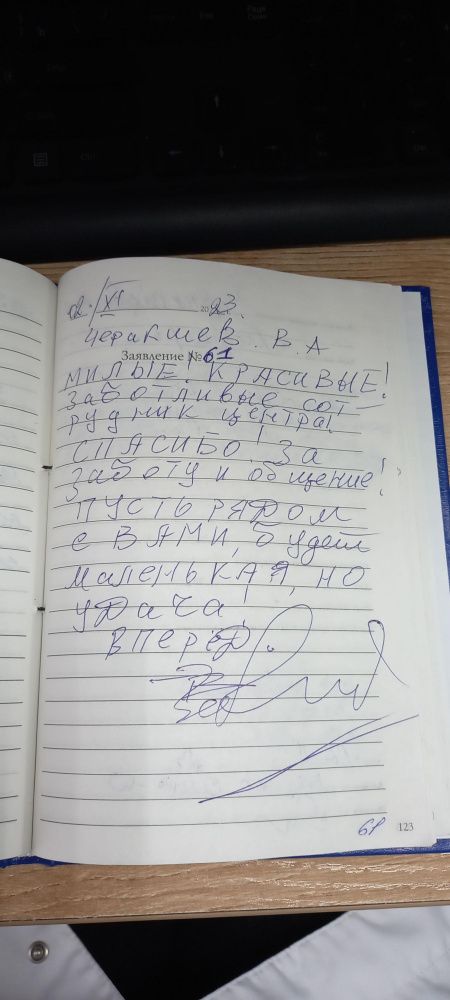 02./XI 2023.
Черакшев. В. А
Заявление № 61
МИЛЫЕ! КРАСИВЫЕ!
Заботливые сот-
рудник центра!
СПАСИБО! За
заботу и общение!
ПУСТЬ РЯДОМ
с ВАМИ, будет
маленькая, но
УДАЧА!
ВПЕРЁД.
61 123